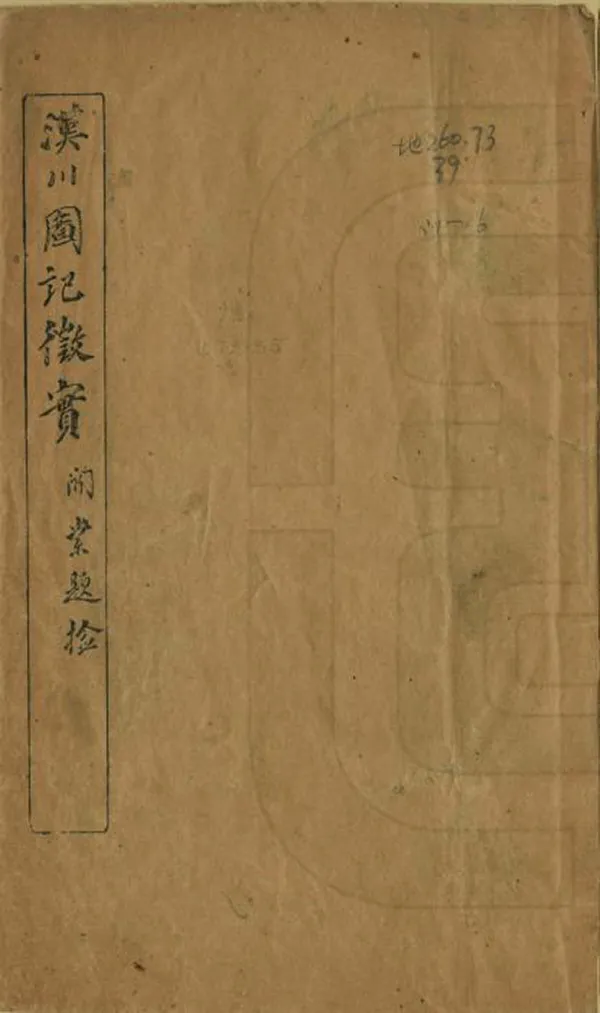 漢川圖記徵實
開業題檢
地260.73
39